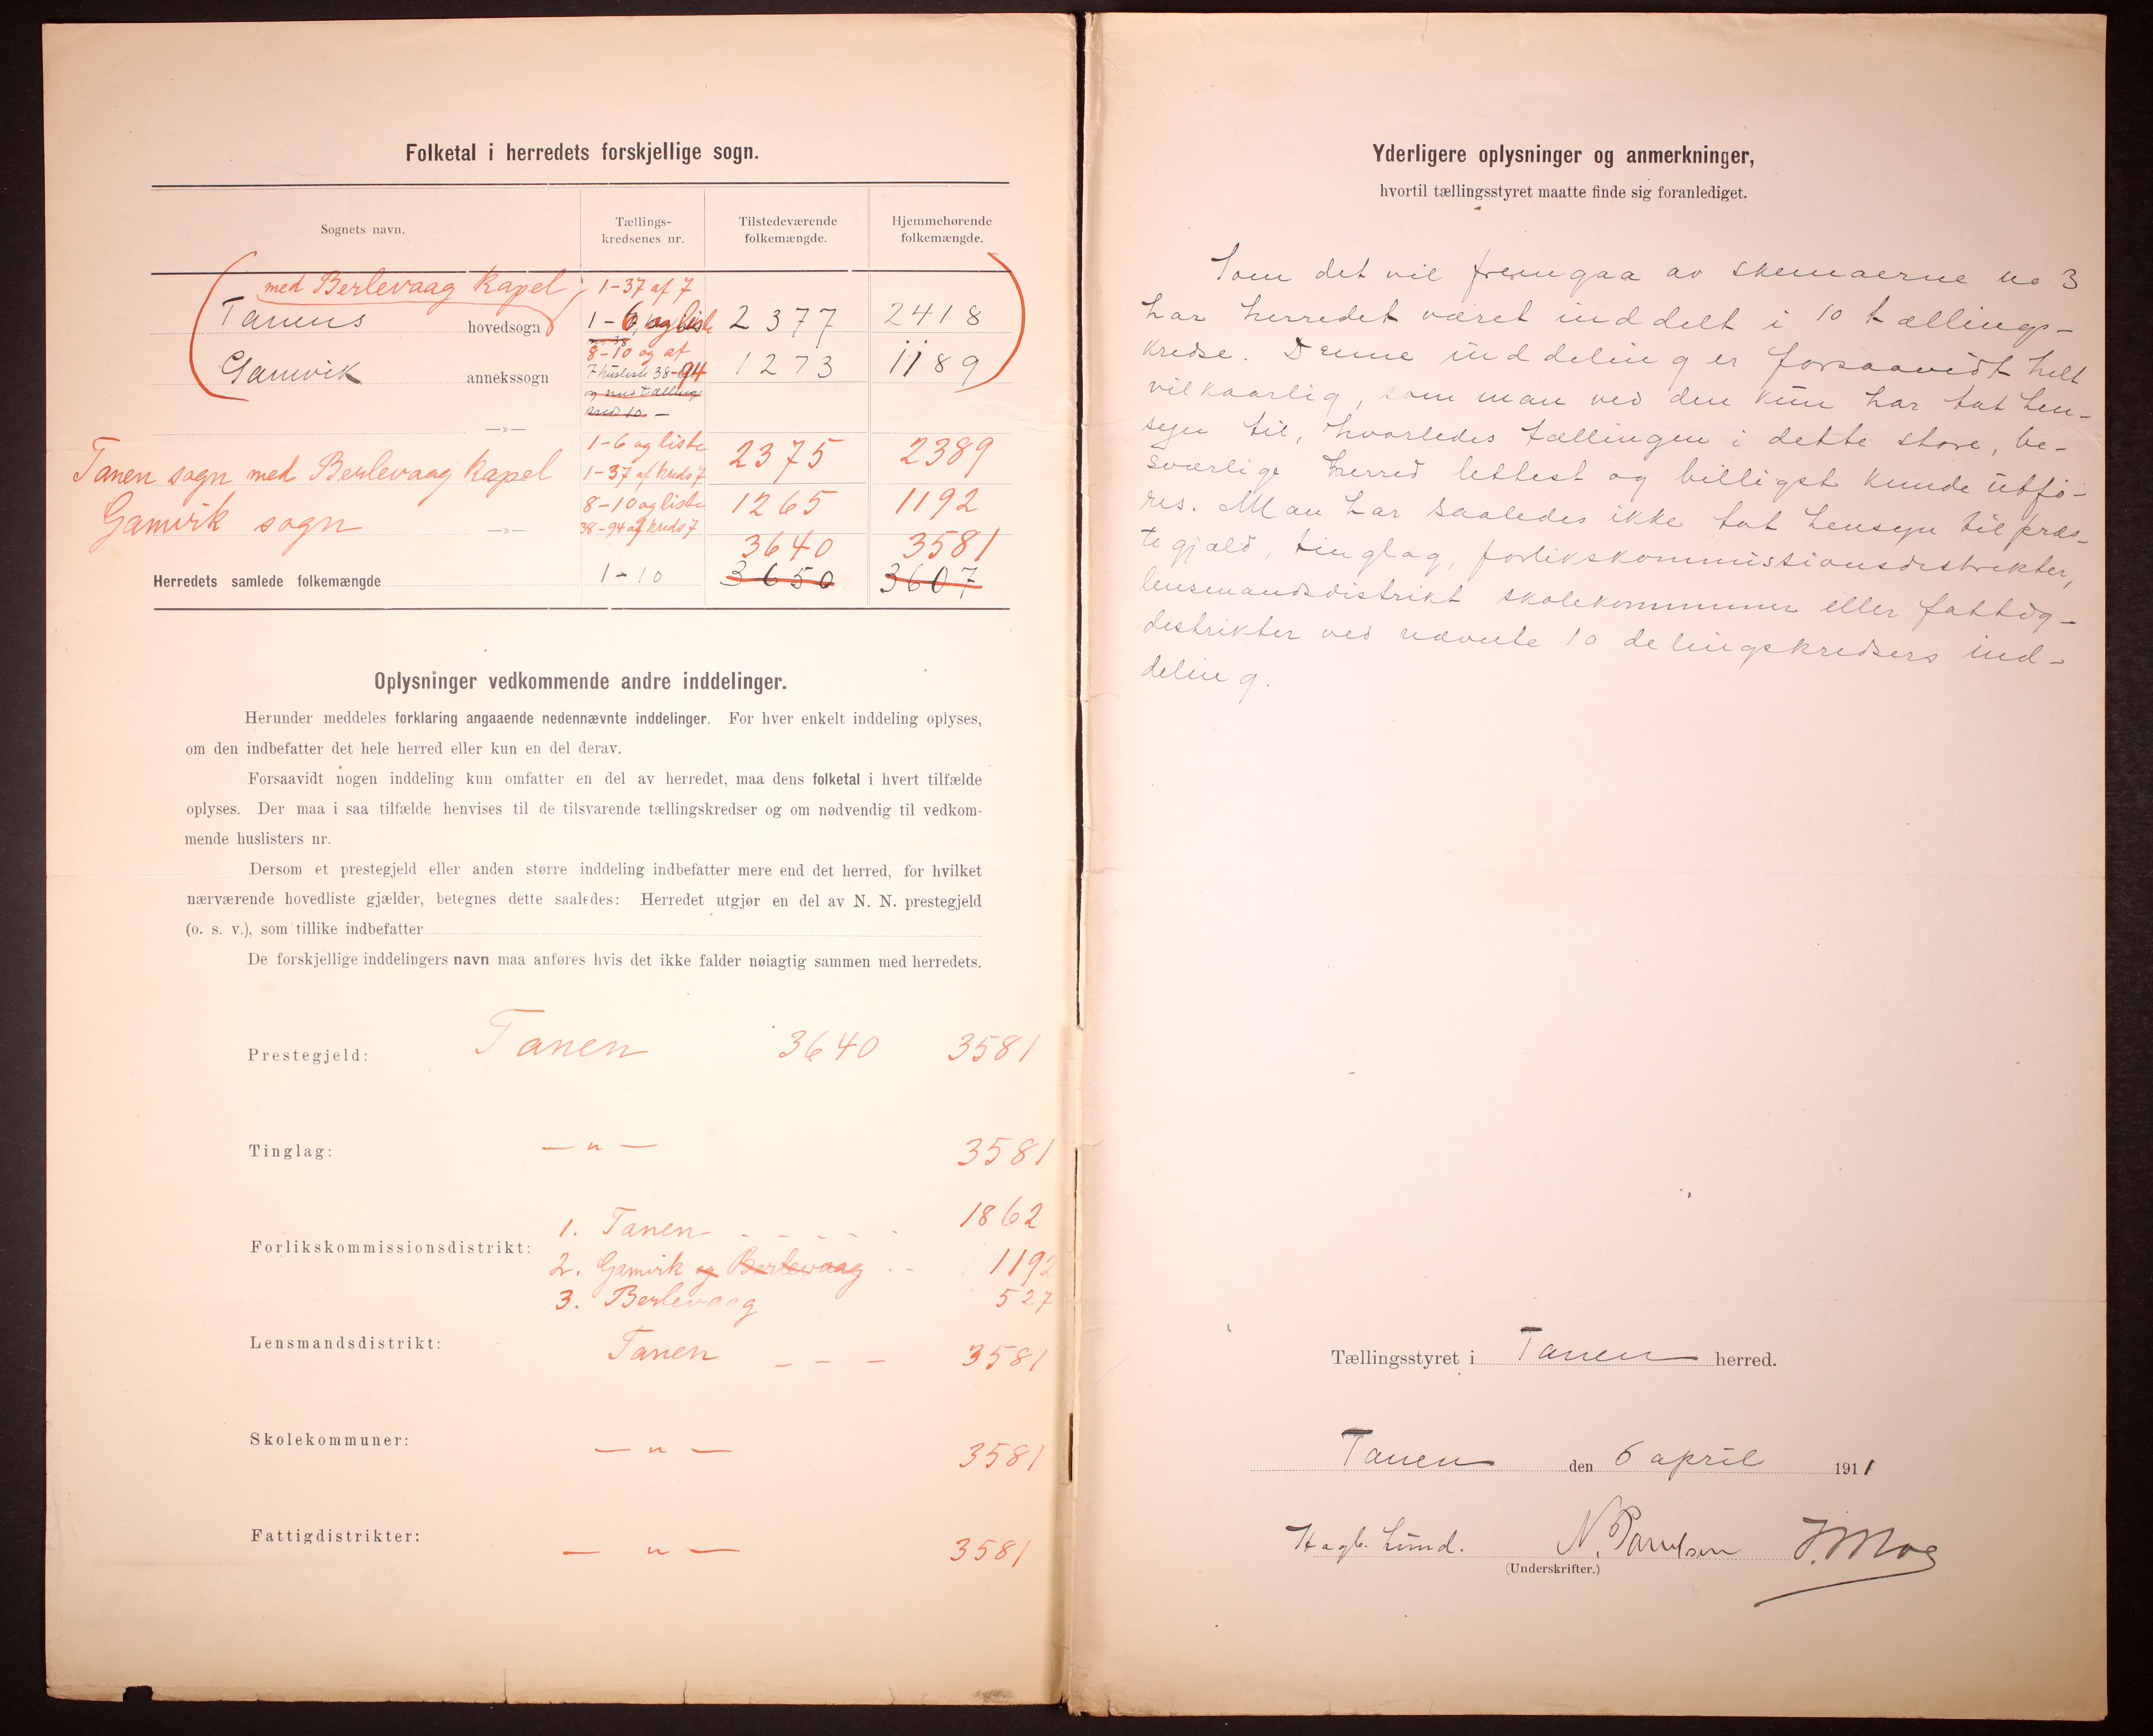 Folketal i herredets forskjellige sogn.
Sognets navn.
Tællings-
kredsenes nr.
Tilstedeværende
folkemængde.
Hjemmehørende
folkemængde.
med Berlevaag Kapel, 1-37 af 7
Tanens hovedsogn 1-6 og liste 2377 2418
8-10 og af
Gamvik annekssogn 7 husliste 38-94 1273 1189
—»—
1-6 og liste
Tanen sogn med Berlevaag Kapel 1-37 af kreds 7 2375 2389
8-10 og liste
Gamvik sogn —»— 38-94 af kreds 7 1265 1192
3640 3581
Herredets samlede folkemængde 1-10 3650 3607
Oplysninger vedkommende andre inddelinger.
Herunder meddeles forklaring angaaende nedennævnte inddelinger. For hver enkelt inddeling oplyses,
om den indbefatter det hele herred eller kun en del derav.
Forsaavidt nogen inddeling kun omfatter en del av herredet, maa dens folketal i hvert tilfælde
oplyses. Der maa i saa tilfælde henvises til de tilsvarende tællingskredser og om nødvendig til vedkom-
mende huslisters nr.
Dersom et prestegjeld eller anden større inddeling indbefatter mere end det herred, for hvilket
nærværende hovedliste gjælder, betegnes dette saaledes: Herredet utgjør en del av N. N. prestegjeld
(o. s. v.), som tillike indbefatter
De forskjellige inddelingers navn maa anføres hvis det ikke falder nøiagtig sammen med herredets.
Prestegjeld: Tanen 3640 3581
Tinglag: — " — 3581
Forlikskommissionsdistrikt: 1. Tanen - - - - - 1862
2. Gamvik og Berlevaag - - 1192
3. Berlevaag 527
Lensmandsdistrikt: Tanen - - - 3581
Skolekommuner: — " — 3581
Fattigdistrikter: — " — 3581
Yderligere oplysninger og anmerkninger,
hvortil tællingsstyret maatte finde sig foranlediget.
Som det vil fremgaa av skemaerne no 3
har herredet været inddelt i 10 tællings-
kredse. Denne inddeling er forsaavidt helt
vilkaarlig, som man ved den kun har tat hen-
syn til, hvorledes tællingen i dette store, be-
sværlige herred lettest og billigst kunde utfø-
res. Man har saaledes ikke tat hensyn til præs-
tegjæld, tinglag, forlikskommissionsdistrikter,
lensmandsdistrikt skolekommuner eller fattig-
destrikter ved nævnte 10 delingskredsers ind-
deling.
Tællingsstyret i Tanen herred.
Tanen den 6 april 1911
Hagb. Lund. N. Paulsen J. Moe
(Underskrifter.)